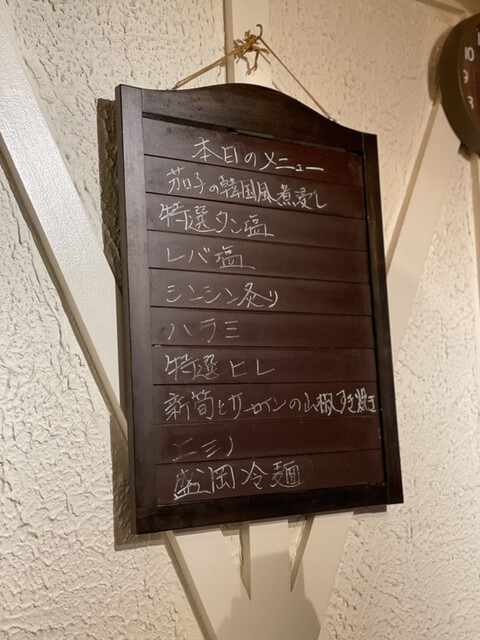 本日のメニュー
茄子の韓国風煮浸し
特選タン塩
レバ塩
シンシン炙り
ハラミ
特選ヒレ
新筍とサーロインの山椒すき焼き
エミノ
盛岡冷麺
10
9